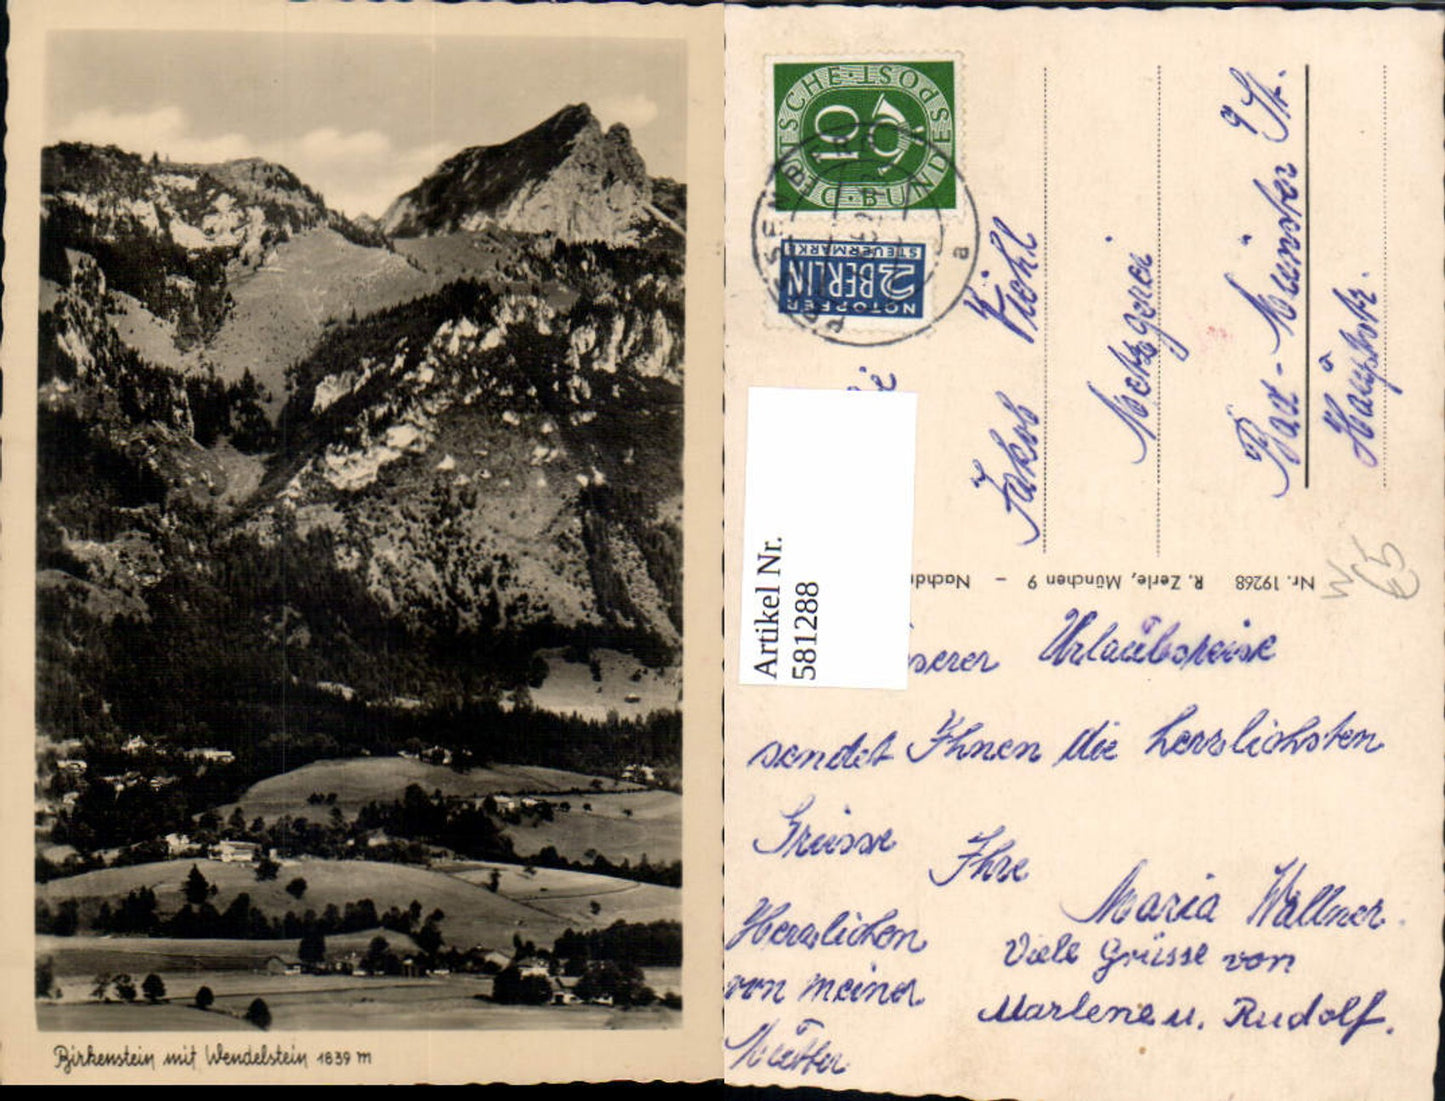 Birkenstein mit Wendelstein 1839 m
DEUTSCHE·POST
10
BUNDES
NOTOPFER
2 BERLIN
STEUERMARKE
a
Jakob
Metzgerei
Bad-Münster a/St.
Hauptstr.
Nr. 19268 R. Zerle, München 9 -
Artikel Nr.
581288
Urlaubsreise
sendet Ihnen die herzlichsten
Grüsse Ihre
Maria Wallner.
Herzlichen
von meiner
Mutter
Viele Grüsse von
Marlene u. Rudolf.